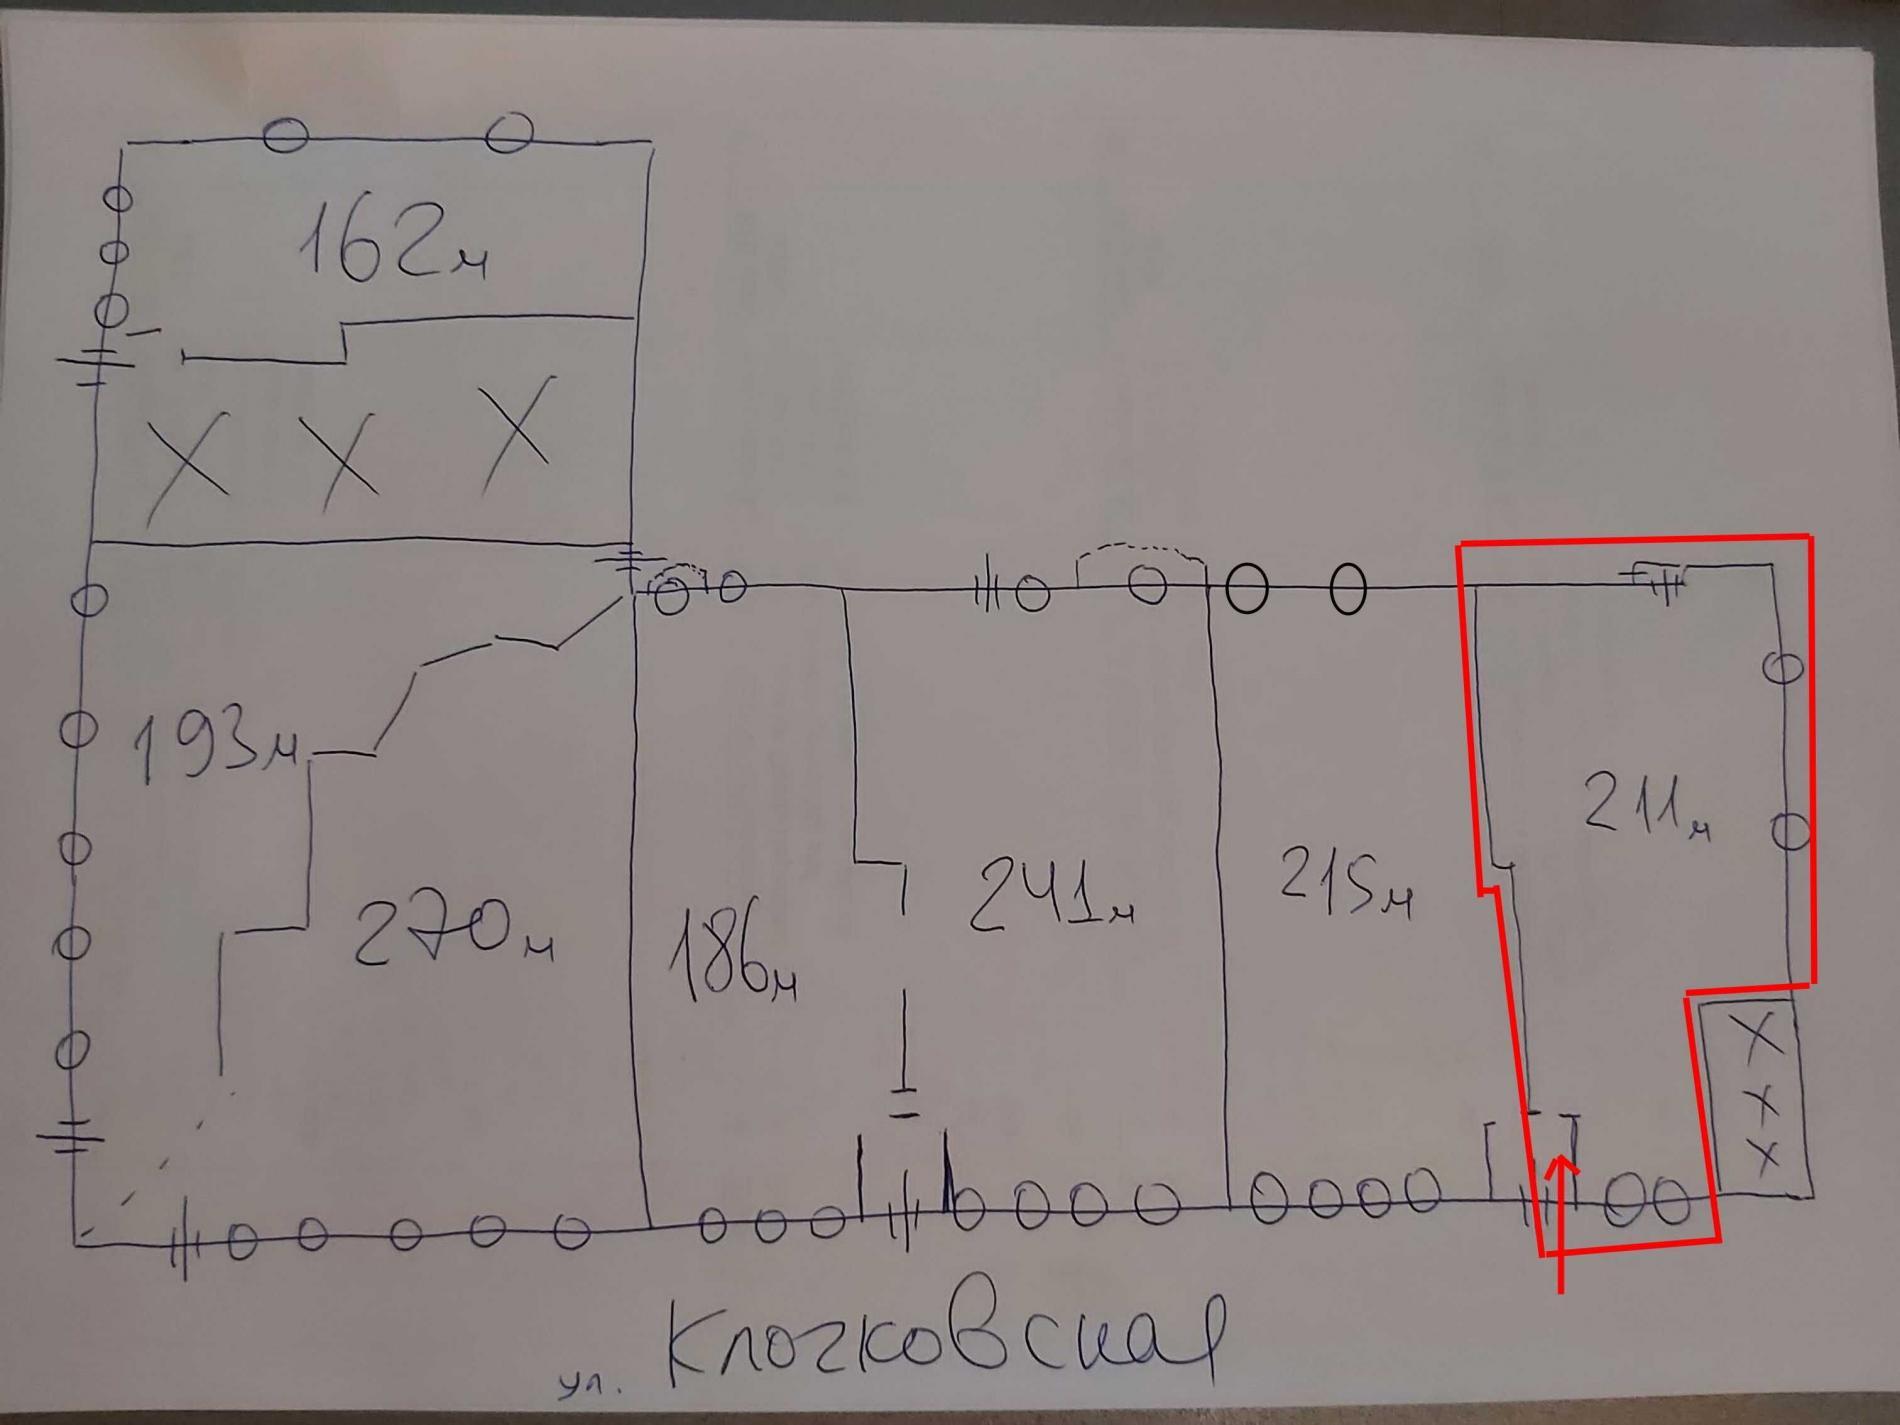 162м
X X X
193м
270м
186м
241м
215м
211м
X
X
X
ул. Клочковская